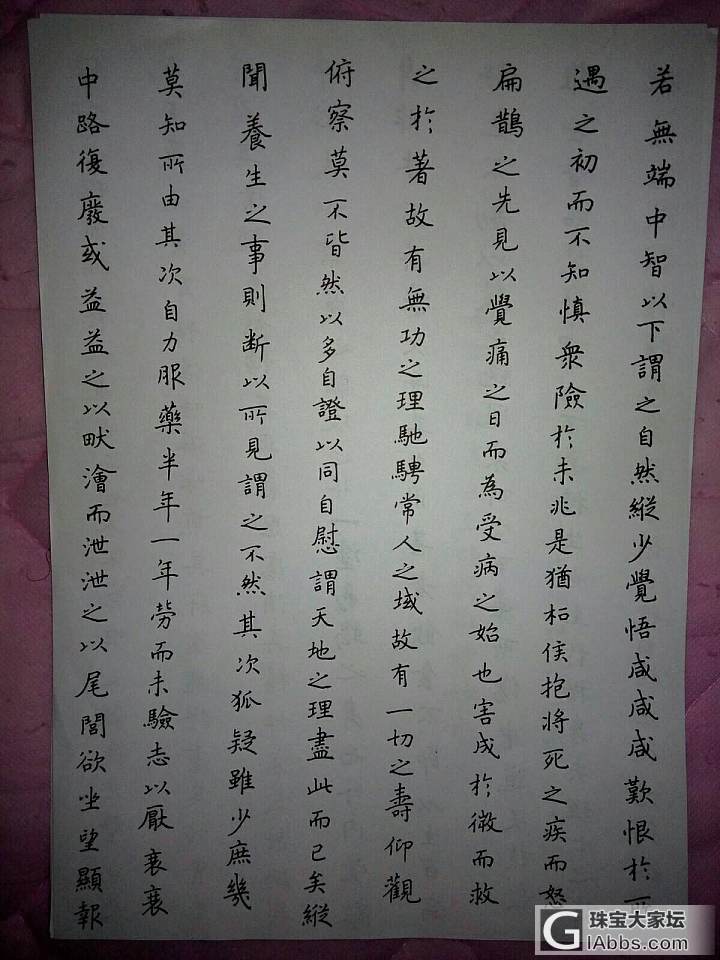 若無端中智以下謂之自然縱少覺悟咸咸咸歎恨於所
遇之初而不知慎衆險於未兆是猶桓侯抱將死之疾而怒
扁鵲之先見以覺痛之日而為受病之始也害成於微而救
之於著故有無功之理馳騁常人之域故有一切之壽仰觀
俯察莫不皆然以多自證以同自慰謂天地之理盡此而已矣縱
聞養生之事則断以所見謂之不然其次狐疑雖少庶幾
莫知所由其次自力服藥半年一年勞而未驗志以厭衰衰
中路復廢或益益之以畎澮而泄泄之以尾閭欲坐望顯報
珠宝大家坛
iAbbs.com